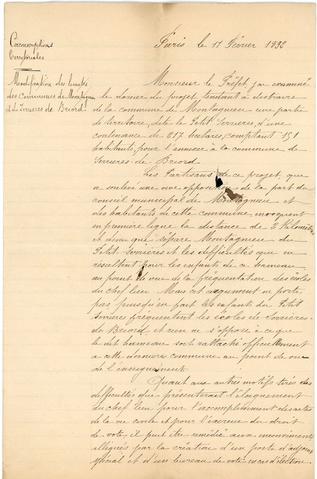 Circonscriptions
Territoriales
Modification des limites
des communes de Montagnieu
et de Serrières de Briord
Paris le 11 Février 1932
Monsieur le Préfet, j'ai examiné
le dossier du projet tendant à distraire
de la commune de Montagnieu une partie
de territoire, dite le Petit Serrières, d'une
contenance de 217 hectares, comptant 151
habitants, pour l'annexer à la commune de
Serrières de Briord.
Les Partisans de ce projet, qui
a soulevé une vive opposition de la part du
conseil municipal de Montagnieu et
des habitants de cette commune, invoquent
en première ligne la distance de 2 kilomètres
et demi qui sépare Montagnieu du
Petit Serrières et les difficultés qui en
résultent pour les enfants de ce hameau
au point de vue de la fréquentation des écoles
du chef lieu. Mais cet argument ne porte
pas puisqu'en fait les enfants du Petit
Serrières fréquentent les écoles de Serrières
de Briord et rien ne s'oppose à ce que
le dit hameau soit rattaché officiellement
à cette dernière commune au point de vue
de l'enseignement.
Quant aux autres motifs tirés des
difficultés que présenterait l'éloignement
du chef lieu pour l'accomplissement des actes
de la vie civile et pour l'exercice du droit
de vote, il peut être remédié aux inconvénients
allégués par la création d'un poste d'adjoint
spécial et d'un bureau de vote